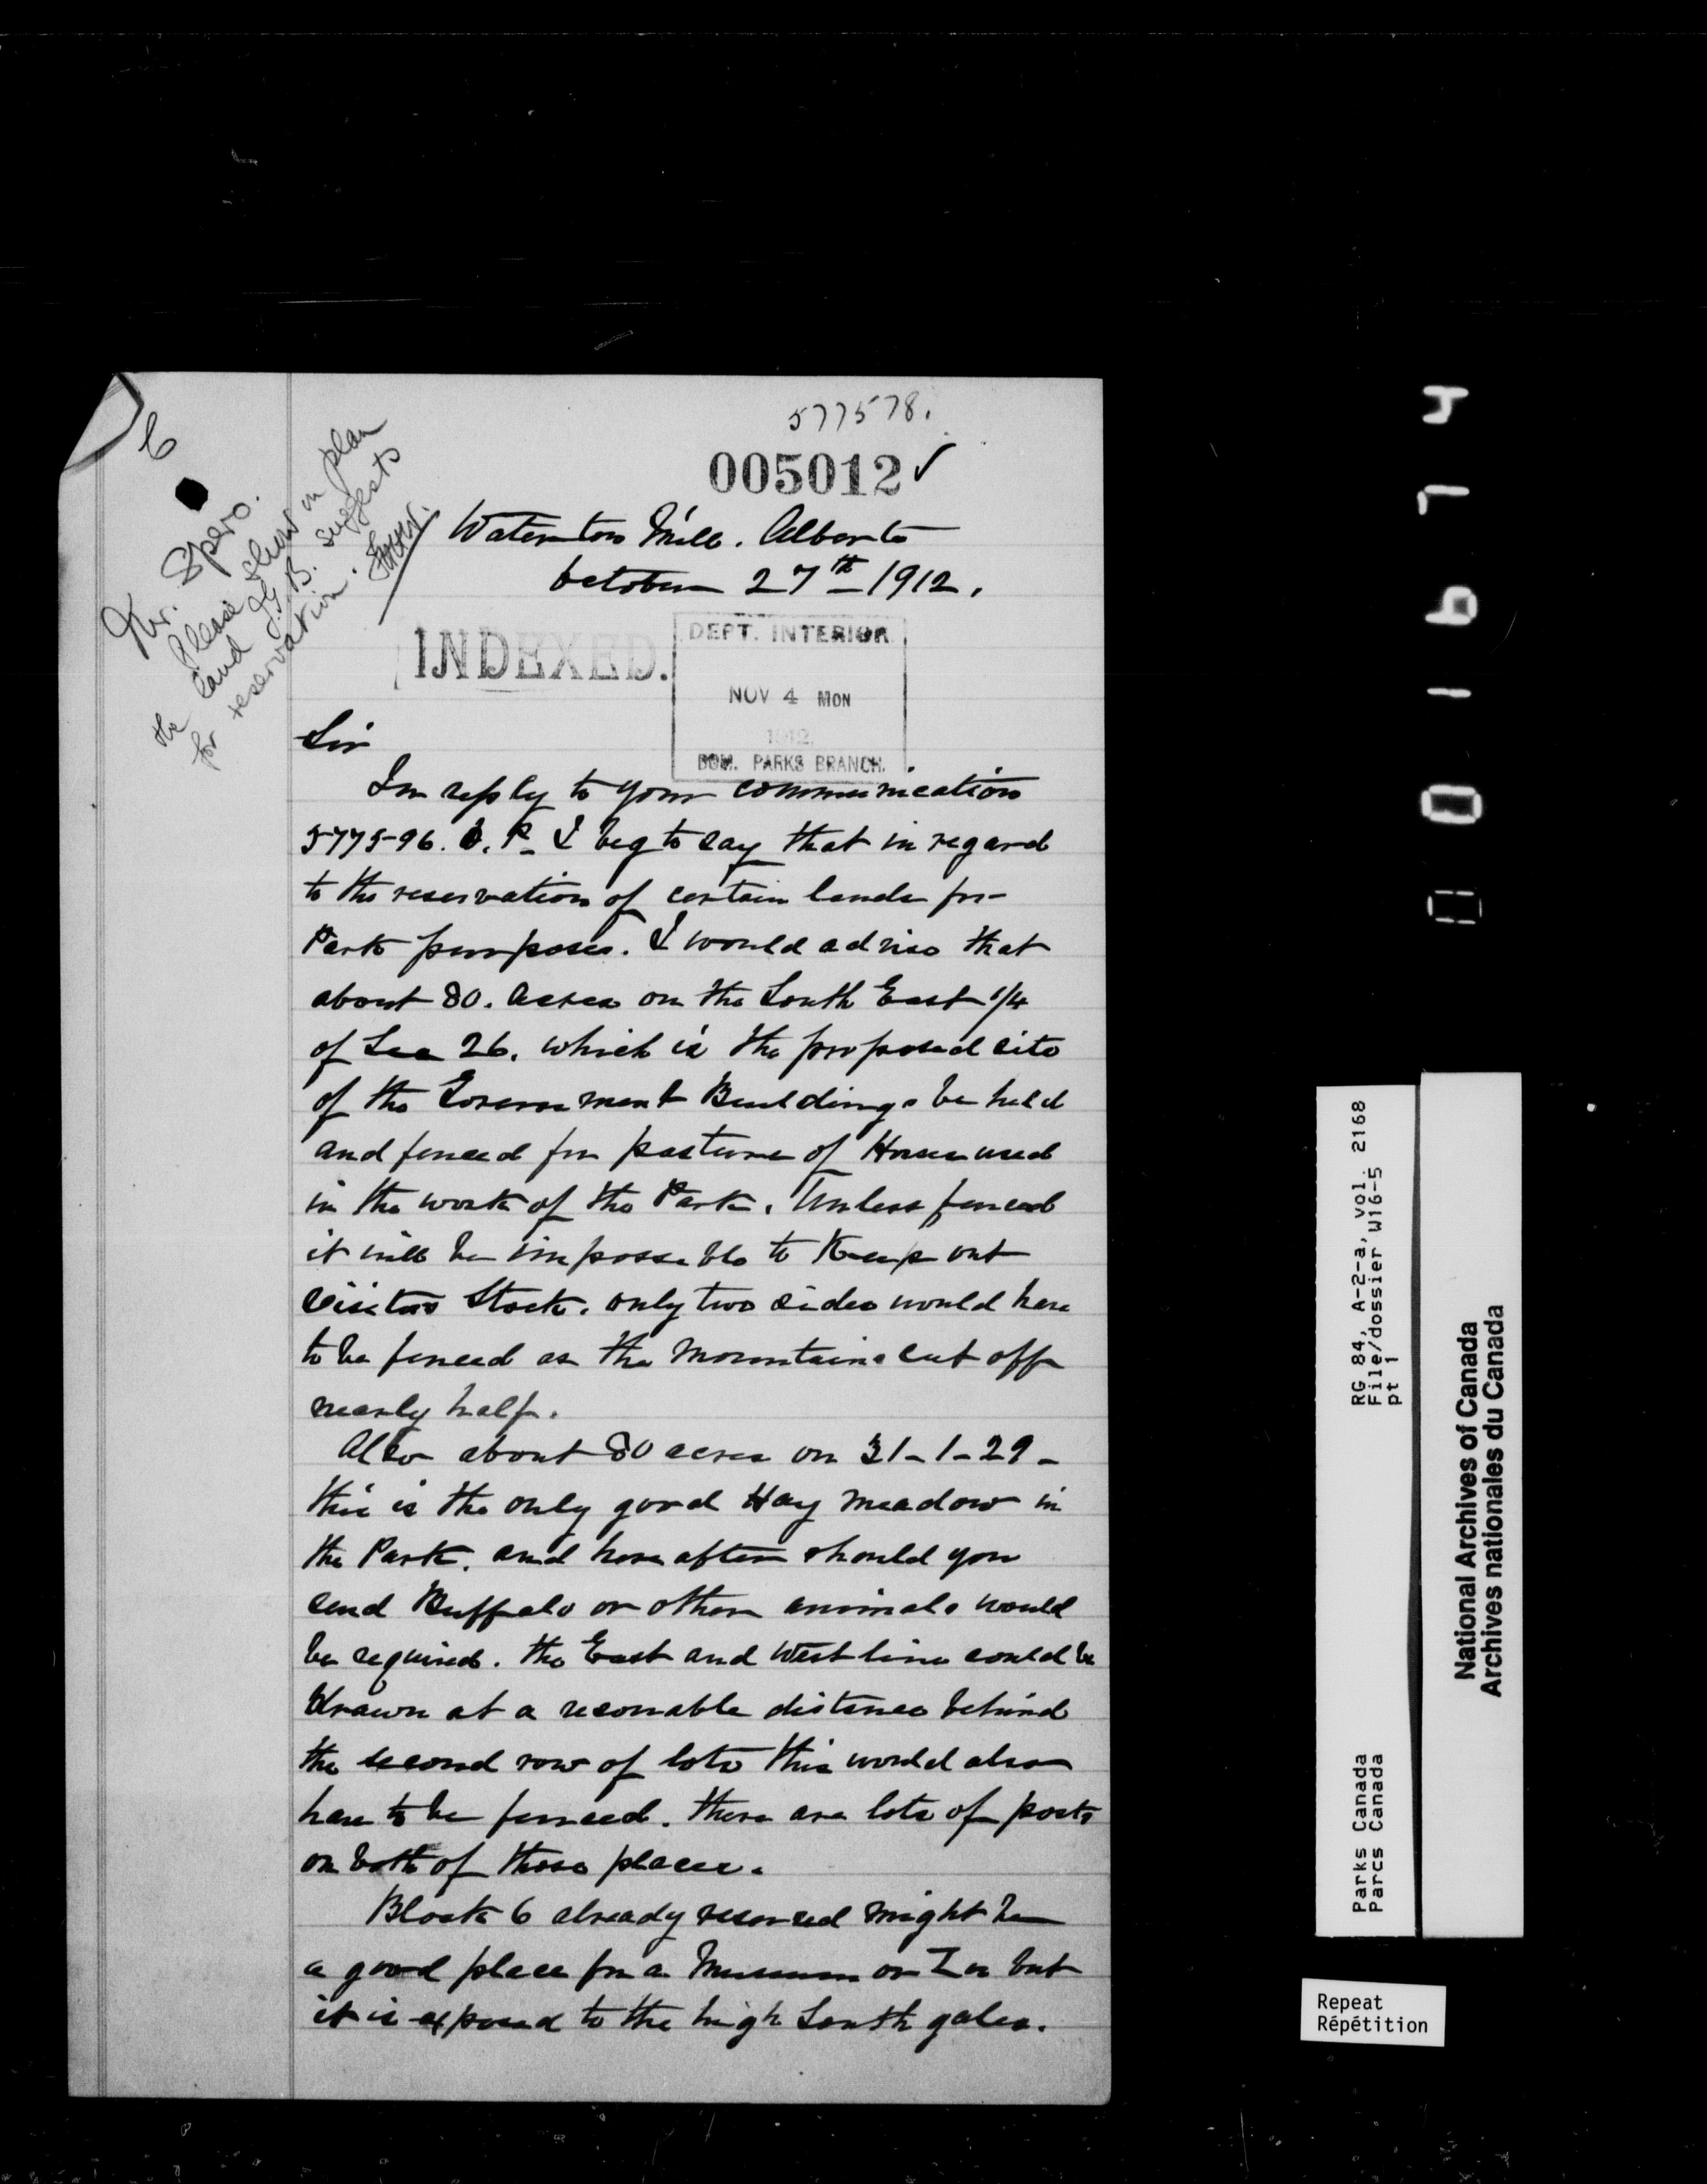 577578.
005012 ✓
6
Mr. Spero.
Please show on plan
the land J.G.B. suggests
for reservation.
Waterton Mill. Alberta
October 27th 1912.
INDEXED.
DEPT. INTERIOR
NOV 4 MON
1912
DOM. PARKS BRANCH.
Sir
In reply to your communication
577596. D. P. I beg to say that in regard
to the reservation of certain lands for
Park purposes. I would advise that
about 80. acres on the South East 1/4
of Sec 26. which is the proposed site
of the Government Buildings be held
and fenced for pasture of Horses used
in the work of the Park. Unless fenced
it will be impossible to Keep out
visitors Stock. only two sides would have
to be fenced as the Mountains cut off
nearly half.
Also about 80 acres on 31-1-29-
this is the only good Hay meadow in
the Park. and hereafter should you
send Buffalo or other animals would
be required. the East and West line could be
drawn at a resonable distance behind
the second row of lots this would also
have to be fenced. there are lots of posts
on both of these places.
Block 6 already reserved might be
a good place for a Museum or Zoo but
it is exposed to the high South gales.
RG 84, A-2-a, vol. 2168
File/dossier W16-5
pt 1
Parks Canada
Parcs Canada
National Archives of Canada
Archives nationales du Canada
Repeat
Répétition